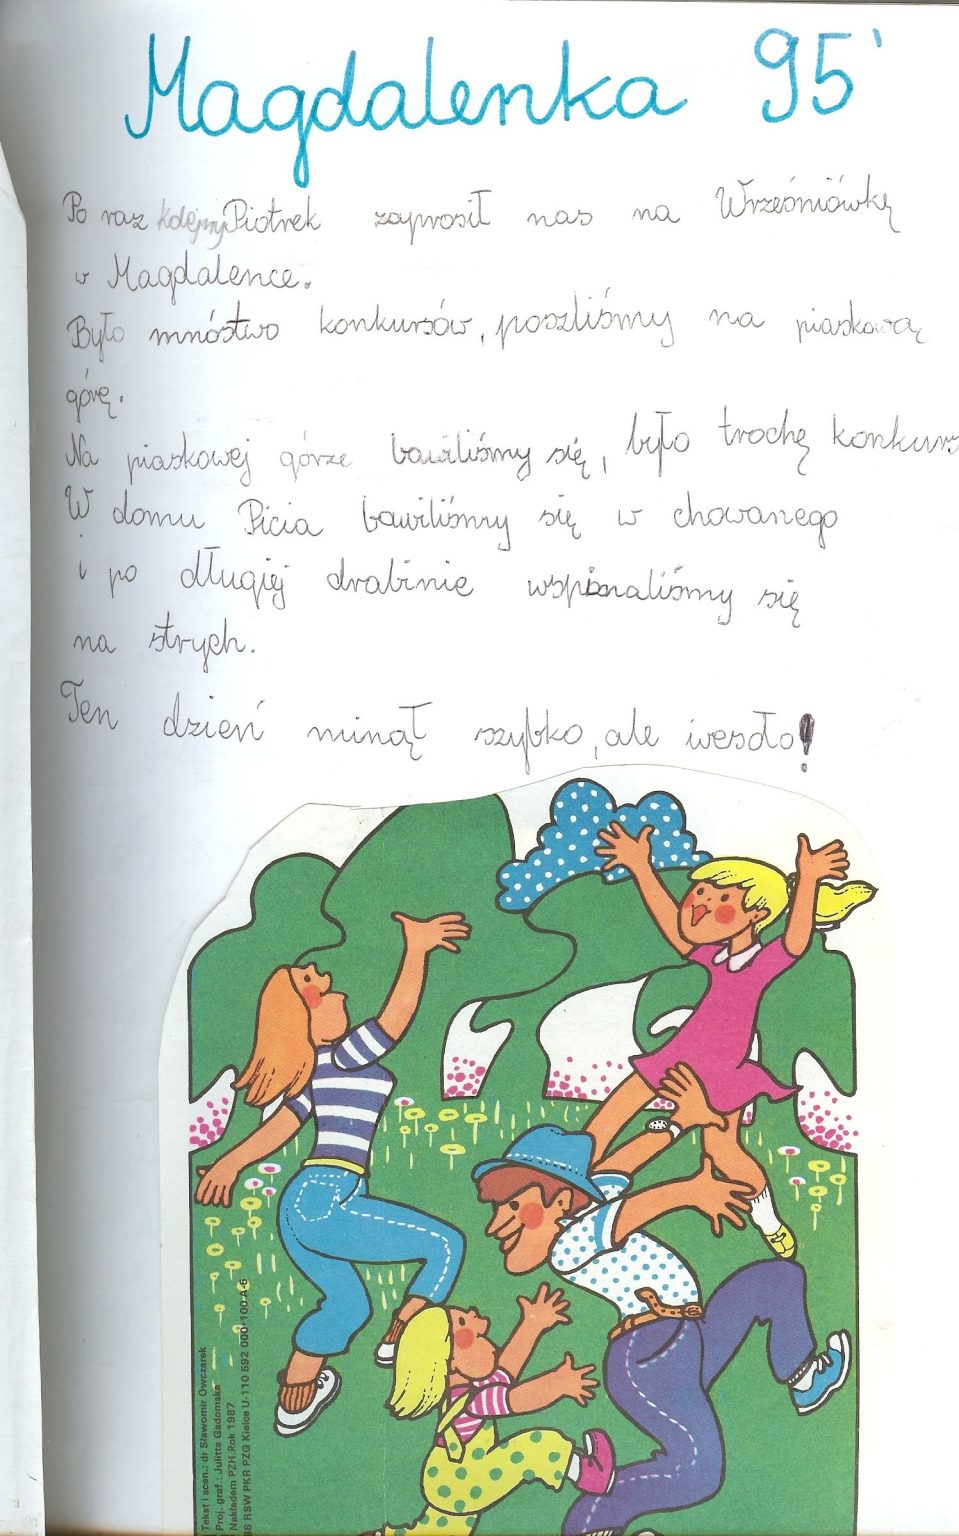 Magdalenka 95'
Po raz kolejny Piotrek zaprosił nas na Wrześniówkę
w Magdalence.
Było mnóstwo konkursów, poszliśmy na piaskową
górę.
Na piaskowej górze bawiliśmy się, było trochę konkurs
W domu Picia bawiliśmy się w chowanego
i po długiej drabinie wspinaliśmy się
na strych.
Ten dzień minął szybko, ale wesoło!
Tekst i scen.: dr Sławomir Owczarek
Proj. graf.: Julitta Gadomska
Nakładem PZH. Rok 1987
88 RSW PKR PZG Kielce U-110 592 000-100-A-6